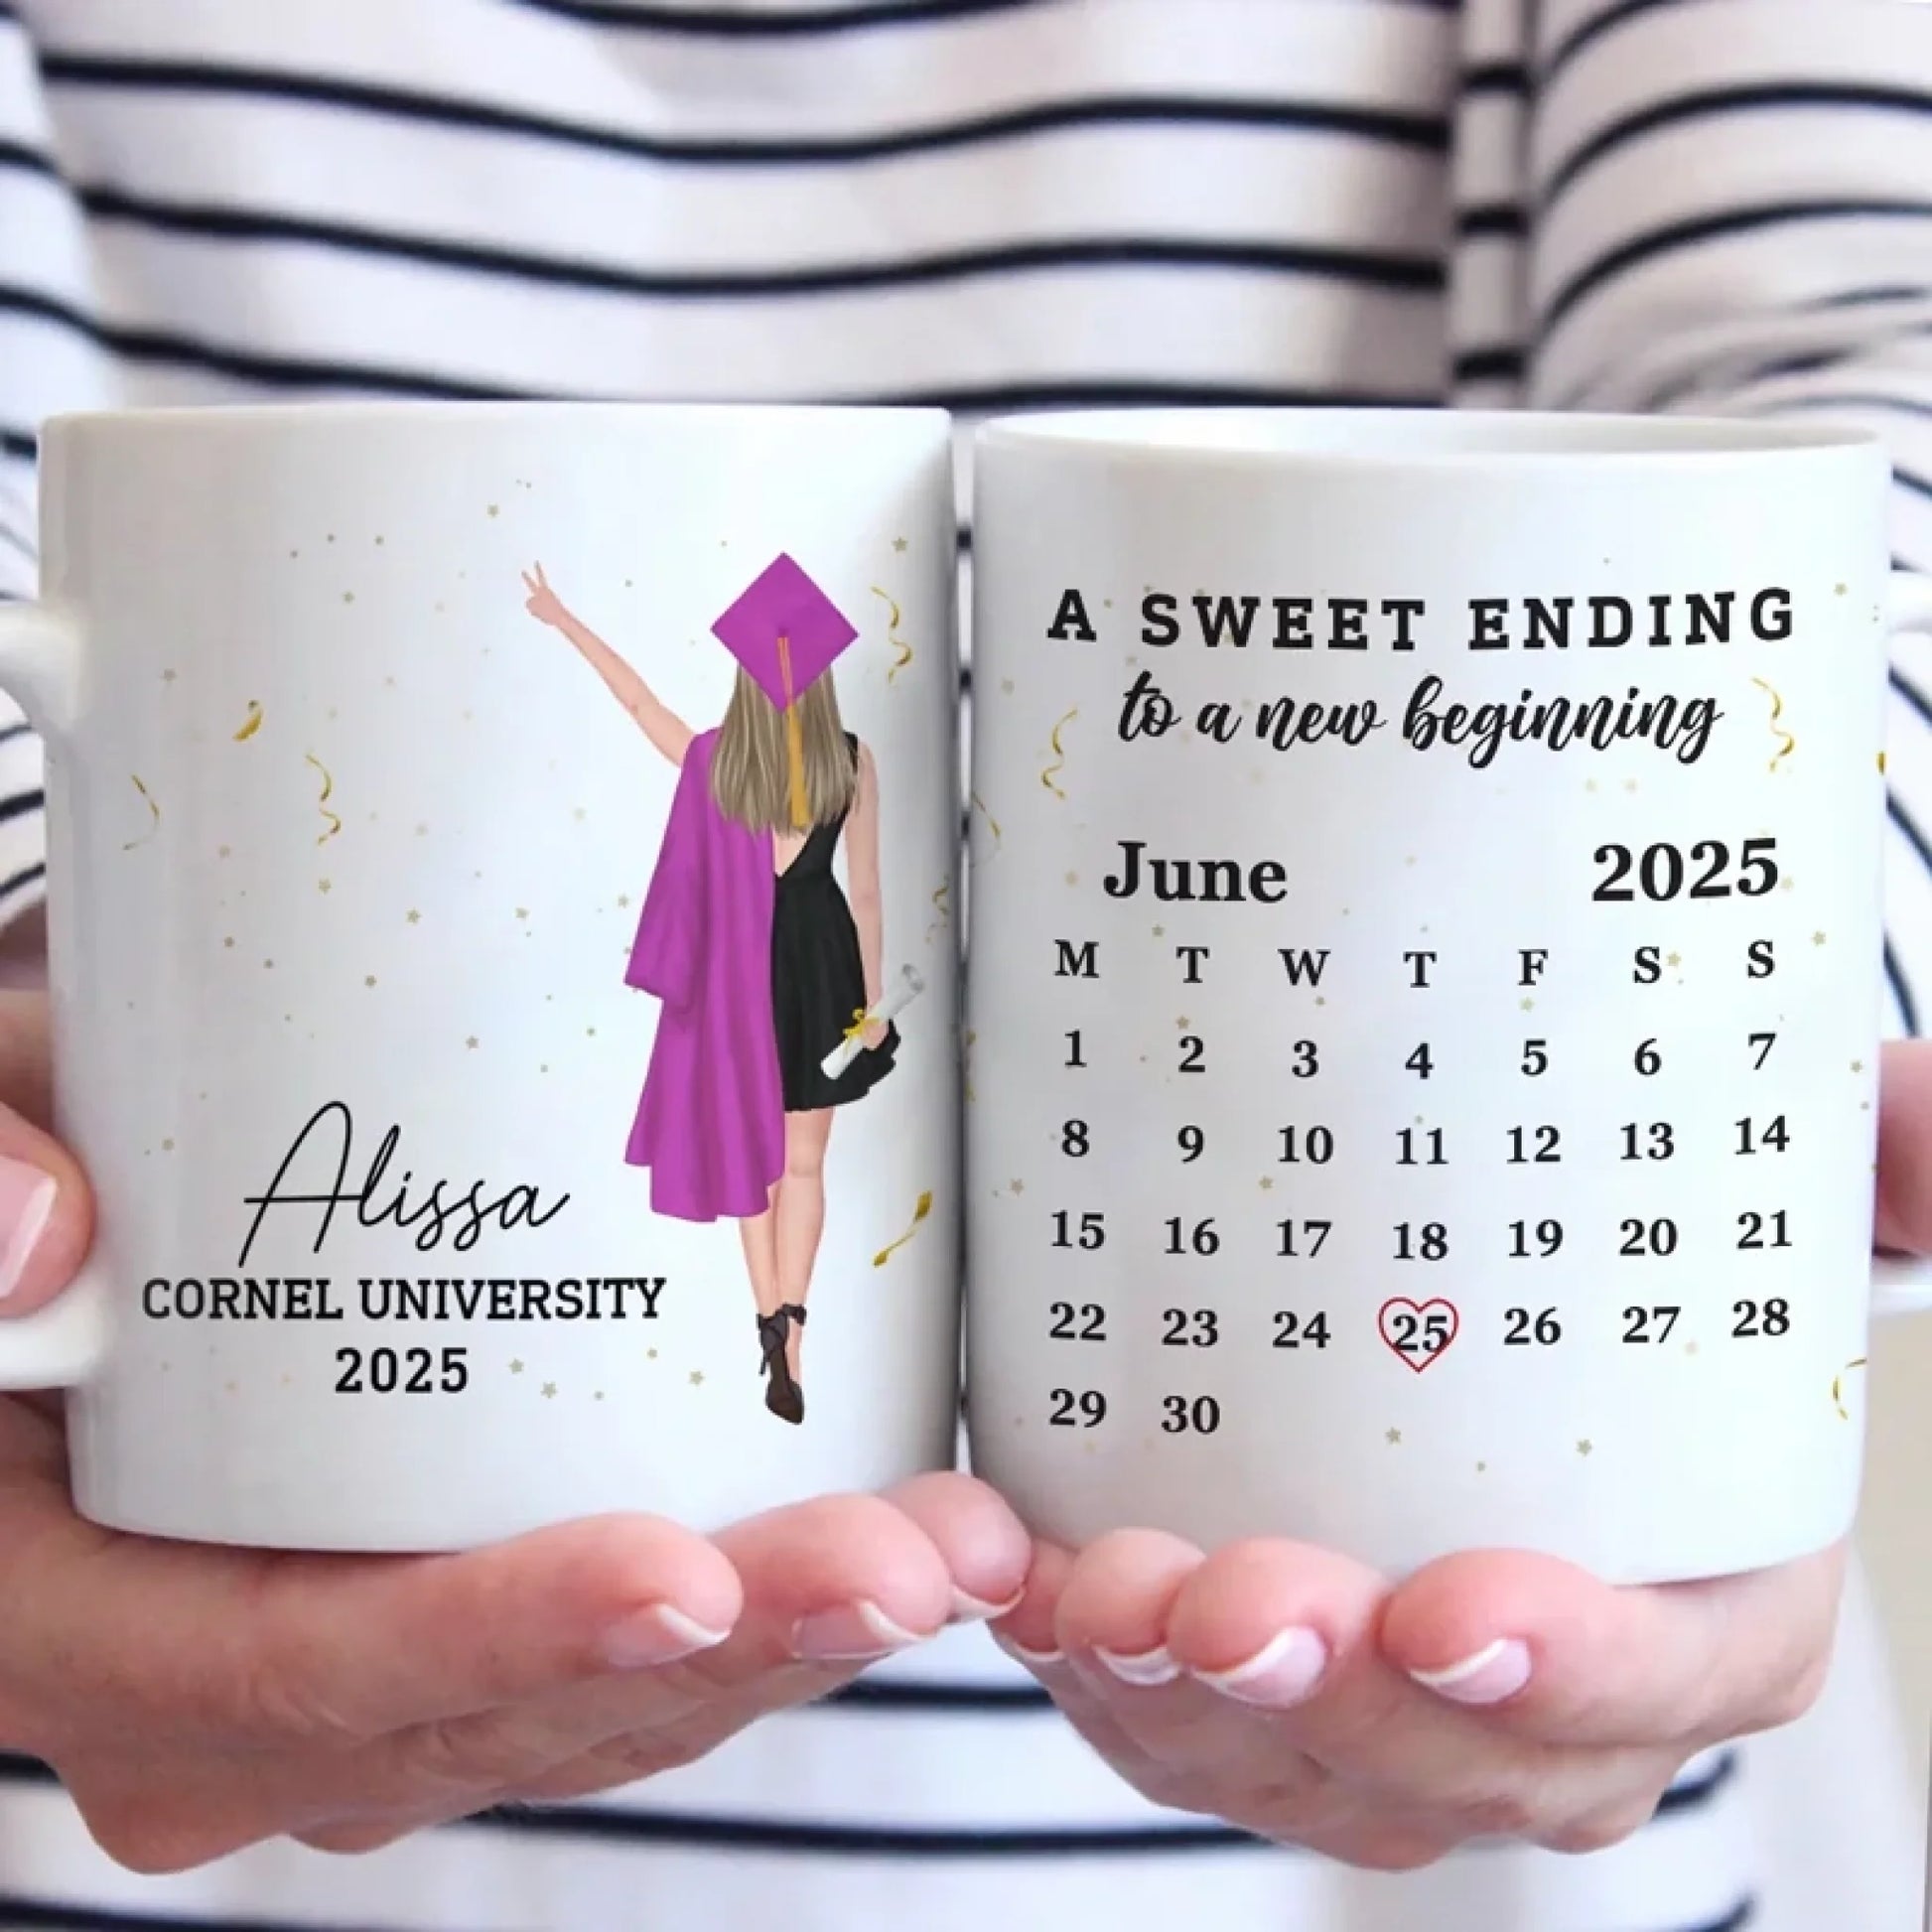 Alissa
CORNEL UNIVERSITY
2025
A SWEET ENDING
to a new beginning
June 2025
M T W T F S S
1 2 3 4 5 6 7
8 9 10 11 12 13 14
15 16 17 18 19 20 21
22 23 24 25 26 27 28
29 30